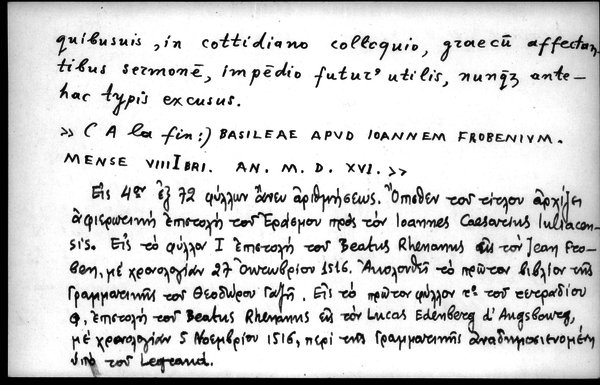 quibusuis, in cottidiano colloquio, graecū affectan,
tibus sermonē, impēdio futurꝰ utilis, nunqꝫ ante-
hac typis excusus.
>> (A la fin:) BASILEAE APVD IOANNEM FROBENIVM.
MENSE VIIIIBRI. AN. M. D. XVI. >>
Εἰς 4ον ἐξ 72 φύλλων ἄνευ ἀριθμήσεως. Ὄπισθεν τοῦ τίτλου ἀρχίζει
ἀφιερωτικὴ ἐπιστολὴ τοῦ Ἐράσμου πρὸς τὸν Ioannes Caesarius Iuliacen-
sis. Εἰς τὸ φύλλον I ἐπιστολὴ τοῦ Beatus Rhenanus εἰς τὸν Jean Fro-
ben, μὲ χρονολογίαν 27 Ὀκτωβρίου 1516. Ἀκολουθεῖ τὸ πρῶτον βιβλίον τῆς
Γραμματικῆς τοῦ Θεοδώρου Γαζῆ. Εἰς τὸ πρῶτον φύλλον τοῦ τετραδίου
φ, ἐπιστολὴ τοῦ Beatus Rhenanus εἰς τὸν Lucas Edenberg d'Augsbourg,
μὲ χρονολογίαν 5 Νοεμβρίου 1516, περὶ τῆς Γραμματικῆς ἀναδημοσιευομένη
ὑπὸ τοῦ Legrand.